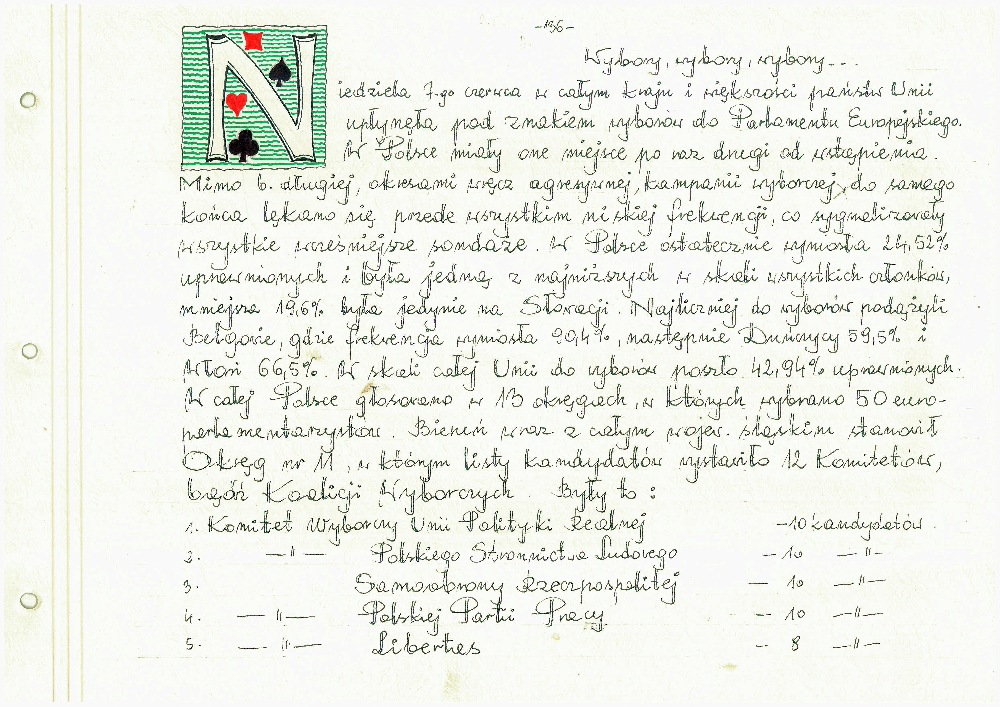 -136-
Wybory, wybory, wybory...
Niedziela 7-go czerwca w całym kraju i większości państw Unii
upłynęła pod znakiem wyborów do Parlamentu Europejskiego.
W Polsce miały one miejsce po raz drugi od wstąpienia.
Mimo b. długiej, okresami wręcz agresywnej, kampanii wyborczej, do samego
końca lękano się przede wszystkim niskiej frekwencji, co sygnalizowały
wszystkie wcześniejsze sondaże. W Polsce ostatecznie wyniosła 24,52%
uprawnionych i była jedną z najniższych w skali wszystkich członków,
mniejsza 19,6% była jedynie na Słowacji. Najliczniej do wyborów podążyli
Belgowie, gdzie frekwencja wyniosła 90,4%, następnie Duńczycy 59,5% i
Włosi 66,5%. W skali całej Unii do wyborów poszło 42,94% uprawnionych.
W całej Polsce głosowano w 13 okręgach, w których wybrano 50 euro-
parlamentarzystów. Bieruń wraz z całym wojew. śląskim stanowił
Okręg nr 11, w którym listy kandydatów wystawiło 12 Komitetów,
bądź Koalicji Wyborczych. Były to:
1. Komitet Wyborczy Unii Polityki Realnej -10 kandydatów.
2. —"— Polskiego Stronnictwa Ludowego — 10 —"—
3. Samoobrony Rzeczpospolitej — 10 —"—
4. —"— Polskiej Partii Pracy — 10 —"—
5. —"— Libertas — 8 —"—